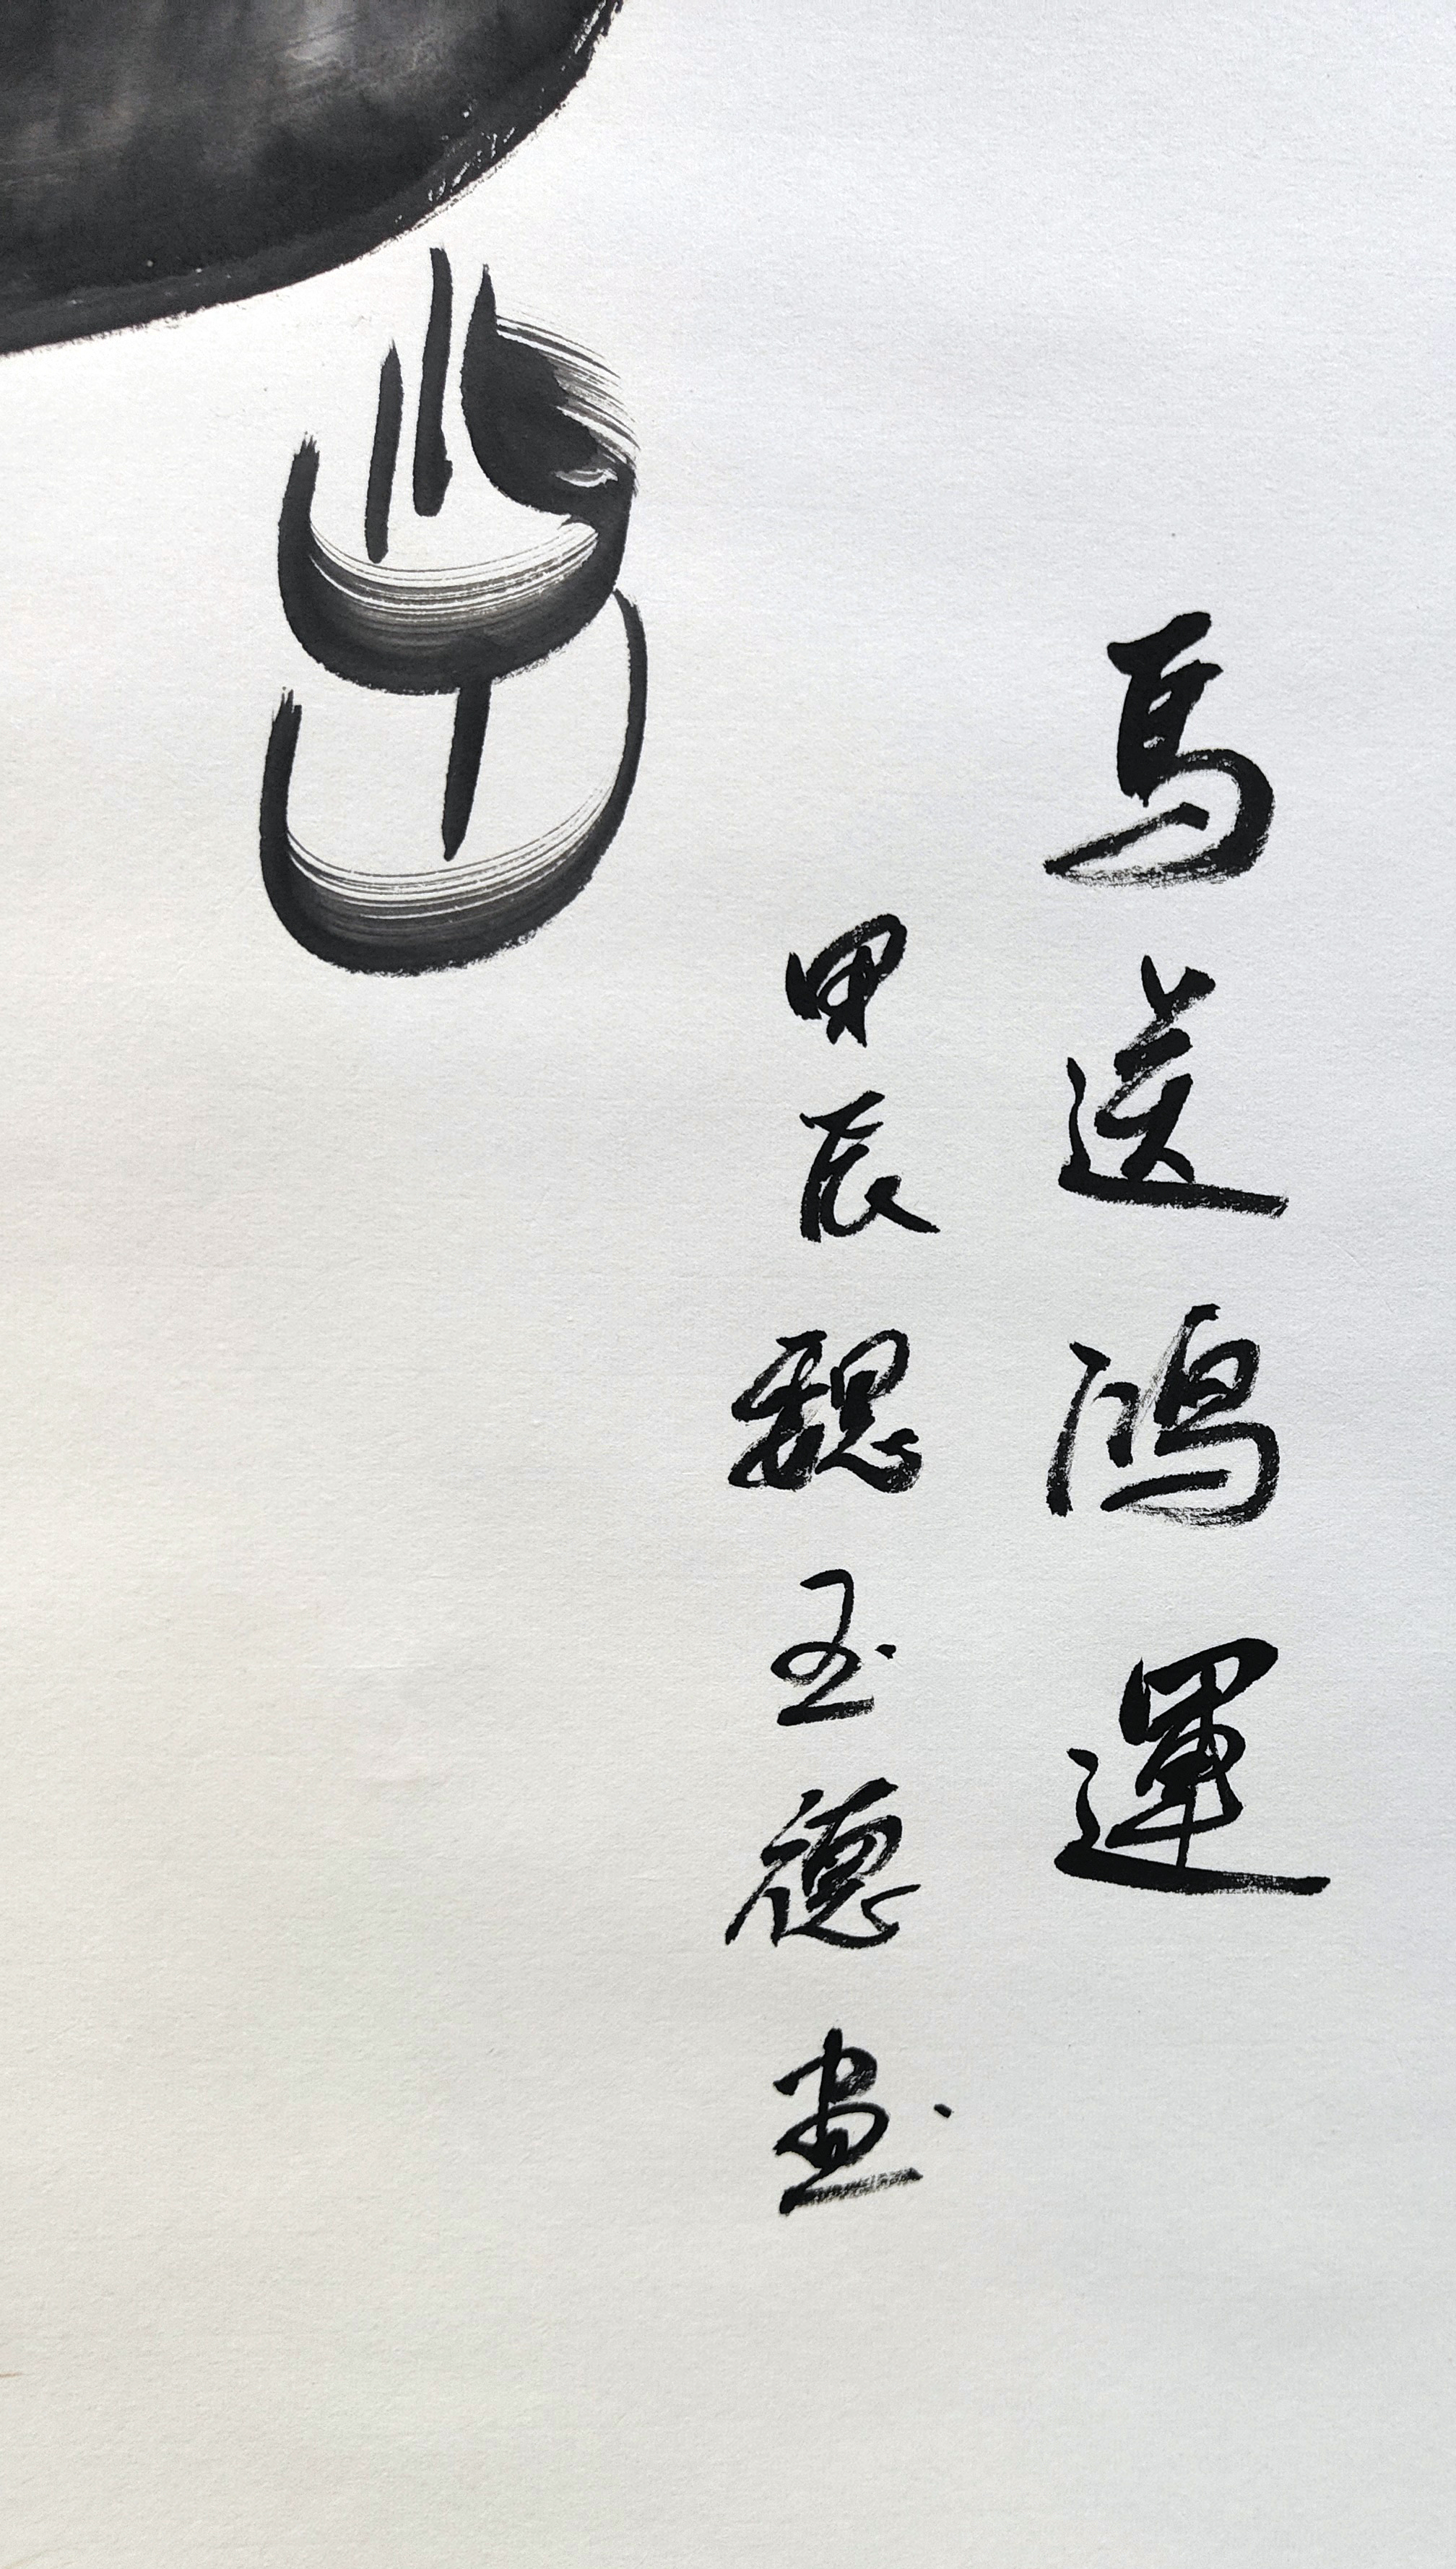 馬送鴻運
甲辰魏玉德画